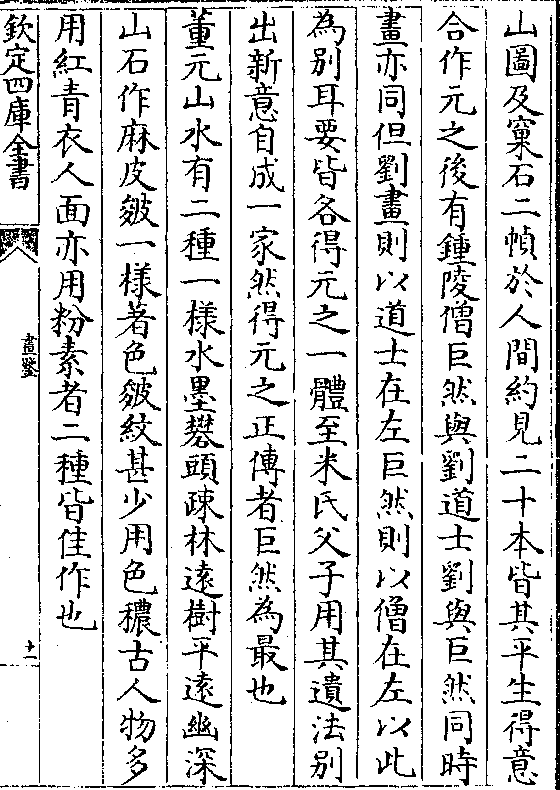 山圖及窠石二幀於人間約見二十本皆其平生得意
合作元之後有鍾陵僧巨然與劉道士劉與巨然同時
畫亦同但劉畫則以道士在左巨然則以僧在左以此
為别耳要皆各得元之一體至米氏父子用其遺法别
出新意自成一家然得元之正傳者巨然為最也
董元山水有二種一様水墨礬頭疎林逺樹平逺幽深
山石作麻皮皴一様著色皴紋甚少用色穠古人物多
用紅青衣人面亦用粉素者二種皆佳作也
欽定四庫全書
畫鑒
十一